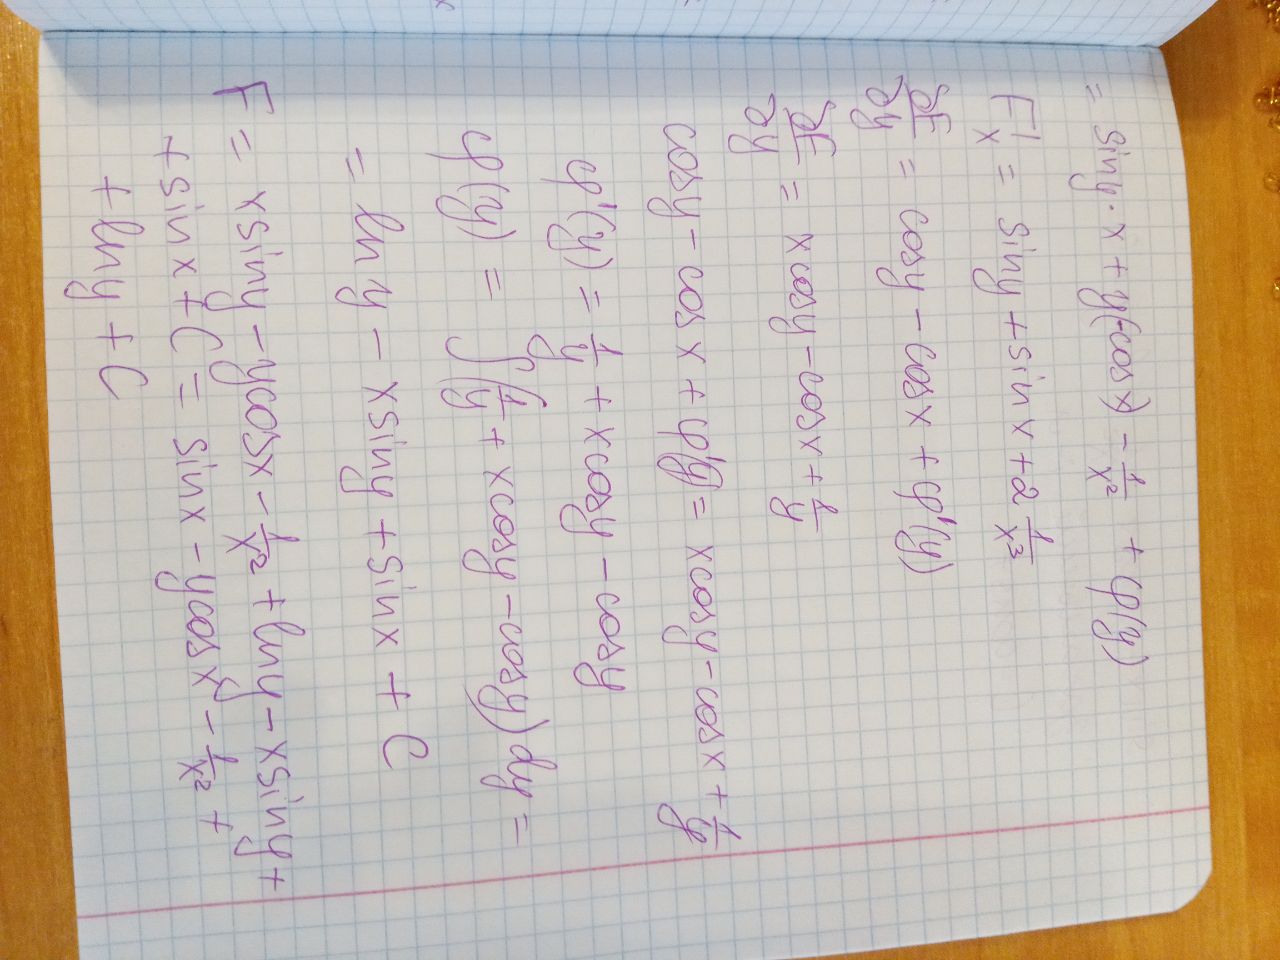 = siny·x + y(-cosx) - 1/x² + φ(y)
F'ₓ = siny + sinx + 2 1/x³
∂F/∂y = cosy - cosx + φ'(y)
∂F/∂y = xcosy - cosx + 1/y
cosy - cosx + φ'(y) = xcosy - cosx + 1/y
φ'(y) = 1/y + xcosy - cosy
φ(y) = ∫(1/y + xcosy - cosy)dy =
= lny - xsiny + sinx + C
F = xsiny - ycosx - 1/x² + lny - xsiny +
+ sinx + C = sinx - ycosx - 1/x² +
+ lny + C